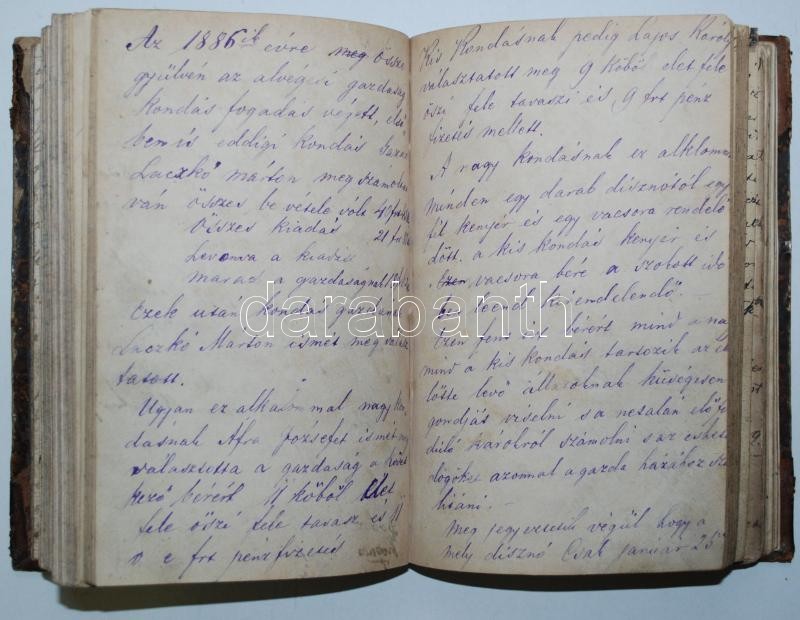 Az 1886ik évre meg össze
gyülvén az alvégesi gazdaság
kondás fogadás végett, elsö
ben is eddigi kondás gazda
Laczkó márton meg számolván
ván összes be vétele volt 40 frt
összes kiadás 21 frt
Levonva a kiadás
marad a gazdaságnak
Ezek után kondás gazdának
Laczkó Márton ismét meg válasz
tatott.
Ugyan ez alkalommal nagy kon
dásnak Áfra Józsefet ismét meg
választotta a gazdaság a követ
kező bérért 11 köböl Élet
fele öszi fele tavasz és 11
o. é frt pénzfizetés
Kis Kondásnak pedig Lajos Károly
választatott meg 9 köböl elet fele
öszi fele tavaszi és 9 frt pénz
fizetés mellett.
A nagy kondásnak ez alkalommal
minden egy darab disznótól egy
fél kenyér és egy vacsora rendelő
dött. a kis kondás kenyér és
Ezen vacsora bére a szokott idő
be leend kirendelendő. –
Ezen fent írt bérért mind a nagy
mind a kis kondás tartozik az el
lőtte levő állatoknak hüségesen
gondját viselni s a netalán előfor
duló károkról számolni s az eshető
dögöket azonnal a gazda házához szál
litani –
Meg jegyeztetik végül hogy a
mely disznó csak január 25
darabanth